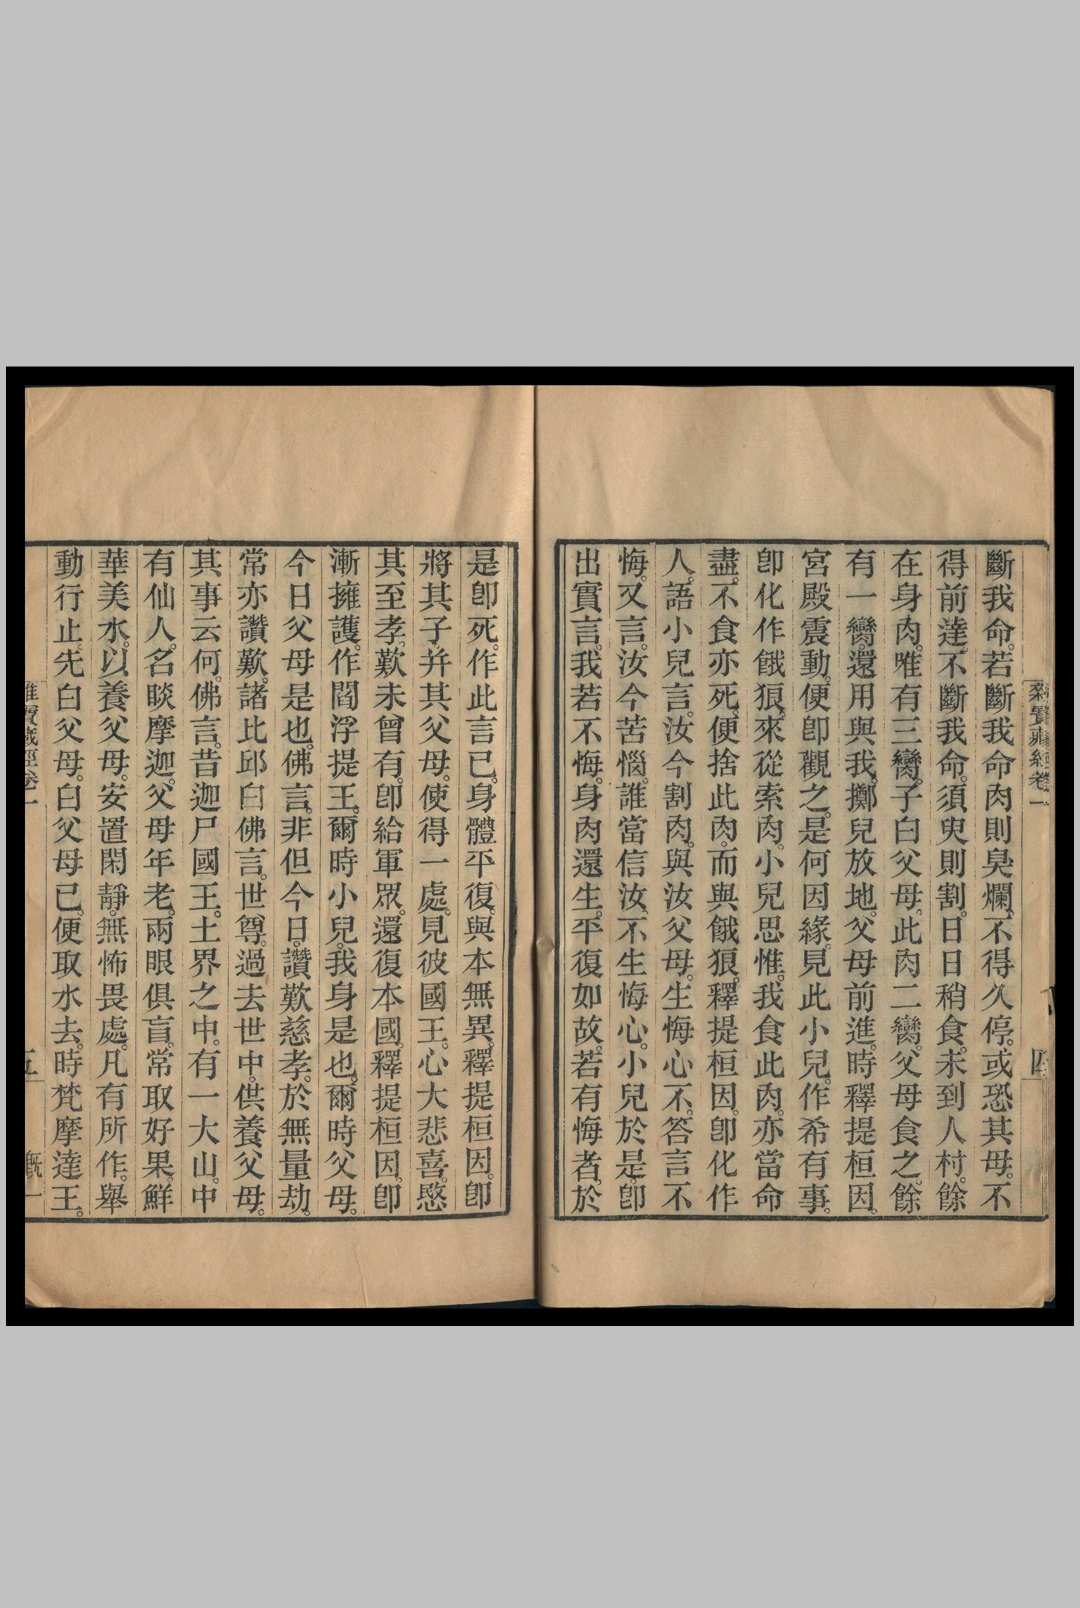 雜寶藏經卷一
四
斷我命。若斷我命肉則臭爛。不得久停。或恐其母。不
得前達。不斷我命。須臾則割。日日稍食。未到人村。餘
在身肉。唯有三臠。子白父母。此肉二臠。父母食之。餘
有一臠。還用與我。擲兒放地。父母前進。時釋提桓因。
宮殿震動。便卽觀之。是何因緣。見此小兒。作希有事。
卽化作餓狼。來從索肉。小兒思惟。我食此肉。亦當命
盡。不食亦死。便捨此肉。而與餓狼。釋提桓因。卽化作
人。語小兒言。汝今割肉。與汝父母。生悔心不。答言不
悔。又言。汝今苦惱。誰當信汝。不生悔心。小兒於是。卽
出實言。我若不悔。身肉還生。平復如故。若有悔者。於
是卽死。作此言已。身體平復。與本無異。釋提桓因。卽
將其子。幷其父母。使得一處。見彼國王。心大悲喜。愍
其至孝。歎未曾有。卽給軍眾。還復本國。釋提桓因。卽
漸擁護。作閻浮提王。爾時小兒。我身是也。爾時父母。
今日父母是也。佛言。非但今日。讚歎慈孝。於無量劫。
常亦讚歎。諸比邱白佛言。世尊。過去世中。供養父母。
其事云何。佛言。昔迦尸國王。土界之中。有一大山。中
有仙人。名睒摩迦。父母年老。兩眼俱盲。常取好果。鮮
華美水。以養父母。安置閑靜。無怖畏處。凡有所作。舉
動行止。先白父母。白父母已。便取水去。時梵摩達王。
雜寶藏經卷一
五
槪一